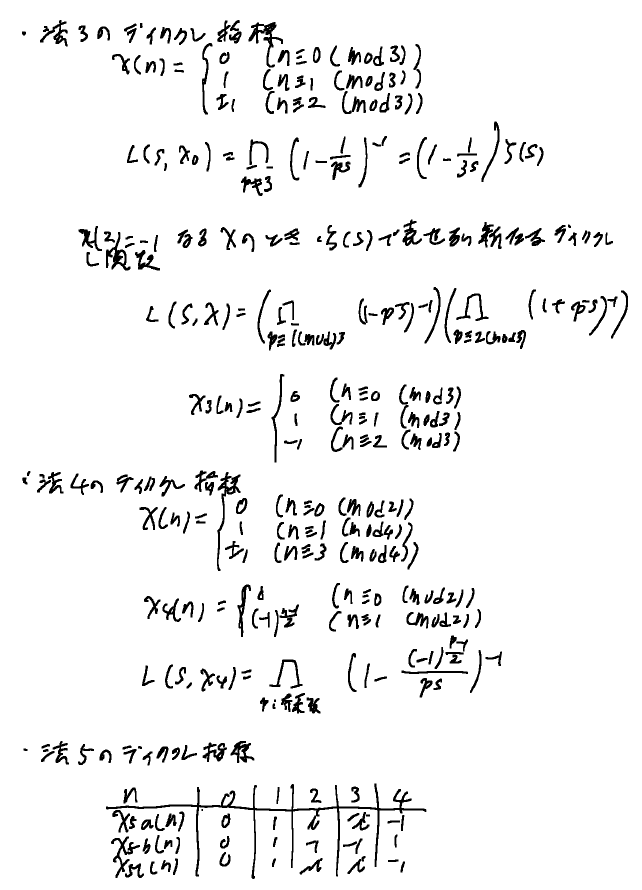 ・法3のディリクレ指標
χ(n) = { 0 (n≡0 (mod3))
1 (n≡1 (mod3))
±1 (n≡2 (mod3))
L(s, χ₀) = ∏_{p≠3} (1 - 1/p^s)^{-1} = (1 - 1/3^s) ζ(s)
χ(2)=-1 なるχのとき ζ(s)で表せない新たなるディリクレ
L関数
L(s, χ) = (∏_{p≡1(mod)3} (1-p^{-s})^{-1}) (∏_{p≡2(mod3)} (1+p^{-s})^{-1})
χ₃(n) = { 0 (n≡0 (mod3)
1 (n≡1 (mod3)
-1 (n≡2 (mod3)
・法4のディリクレ指標
χ(n) = { 0 (n≡0 (mod2))
1 (n≡1 (mod4))
±1 (n≡3 (mod4))
χ₄(n) = { 0 (n≡0 (mod2))
(-1)^{(n-1)/2} (n≡1 (mod2))
L(s, χ₄) = ∏_{p:奇素数} (1 - (-1)^{(p-1)/2}/p^s)^{-1}
・法5のディリクレ指標
n 0 1 2 3 4
χ₅a(n) 0 1 i -i -1
χ₅b(n) 0 1 -1 -1 1
χ₅c(n) 0 1 -i i -1